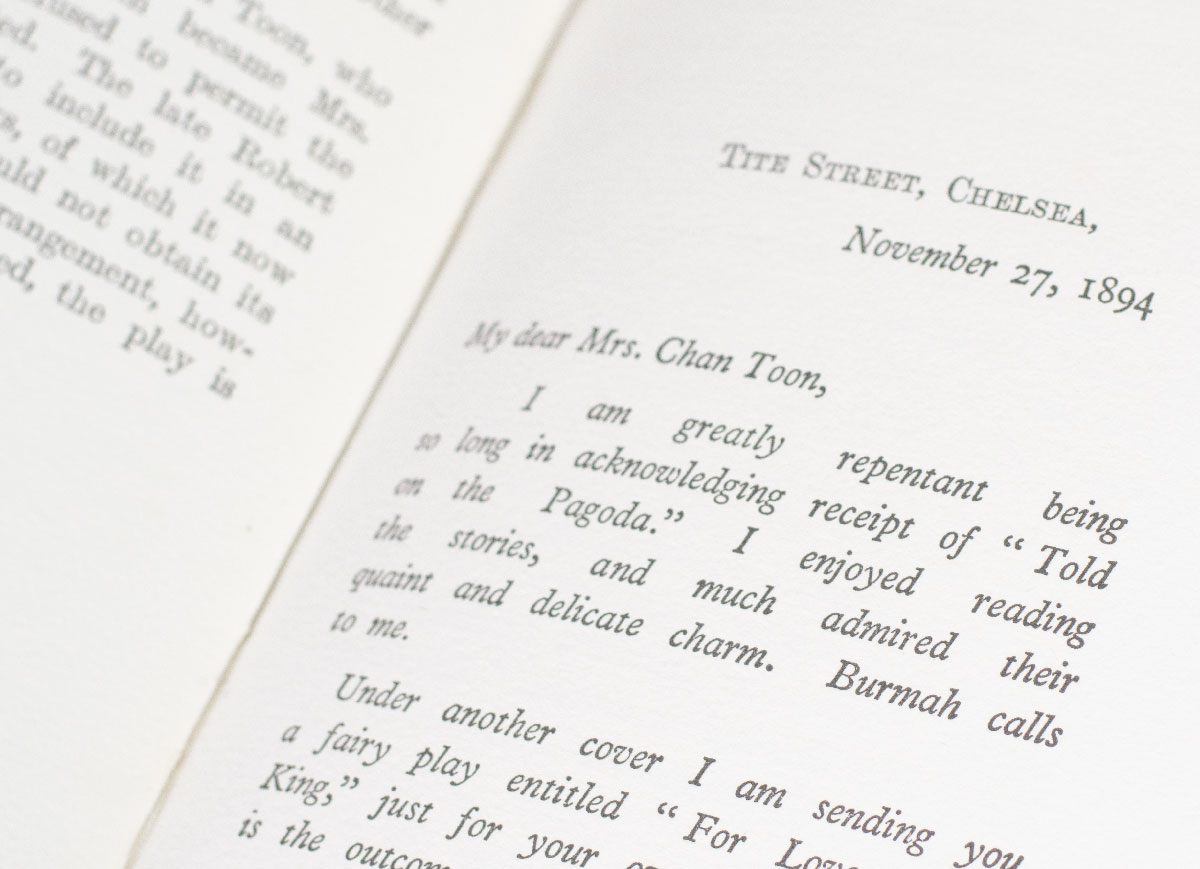 Toon, who
became Mrs.
to permit the
The late Robert
to include it in an
of which it now
not obtain its
how-
the play is
TITE STREET, CHELSEA,
November 27, 1894
My dear Mrs. Chan Toon,
I am greatly repentant being
so long in acknowledging receipt of “Told
on the Pagoda.” I enjoyed reading
the stories, and much admired their
quaint and delicate charm. Burmah calls
to me.
Under another cover I am sending you
a fairy play entitled “For Love
King,” just for your
is the